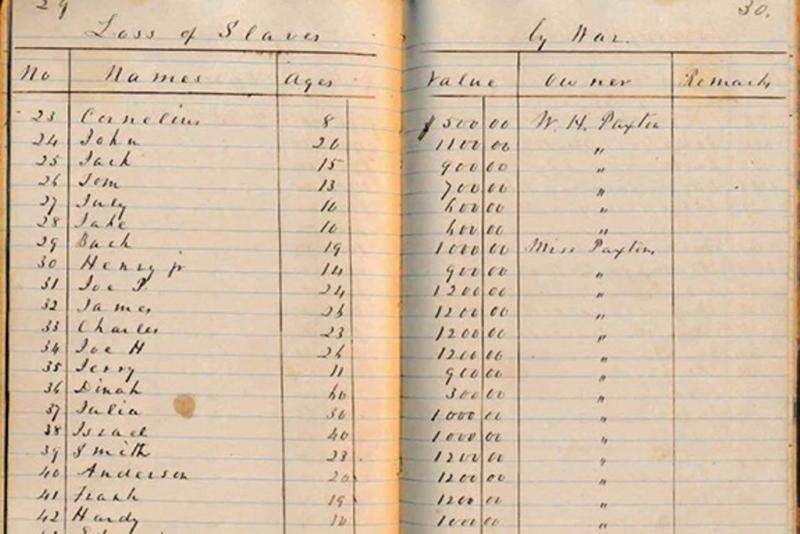 29 30.
Loss of Slaves by War.
No Names Ages Value Owner Remarks
23 Cornelius 8 $ 500 00 W. H. Paxton
24 John 20 1100 00 "
25 Jack 15 900 00 "
26 Tom 13 700 00 "
27 July 10 600 00 "
28 Jake 10 600 00 "
29 Bach 19 1000 00 Miss Paxton
30 Henry jr 14 900 00 "
31 Joe P. 24 1200 00 "
32 James 26 1200 00 "
33 Charles 23 1200 00 "
34 Joe H 26 1200 00 "
35 Jerry 11 900 00 "
36 Dinah 60 300 00 "
37 Julia 30 1000 00 "
38 Israel 40 1000 00 "
39 Smith 23 1200 00 "
40 Anderson 20 1200 00 "
41 Frank 19 1200 00 "
42 Hardy 1000 00 "